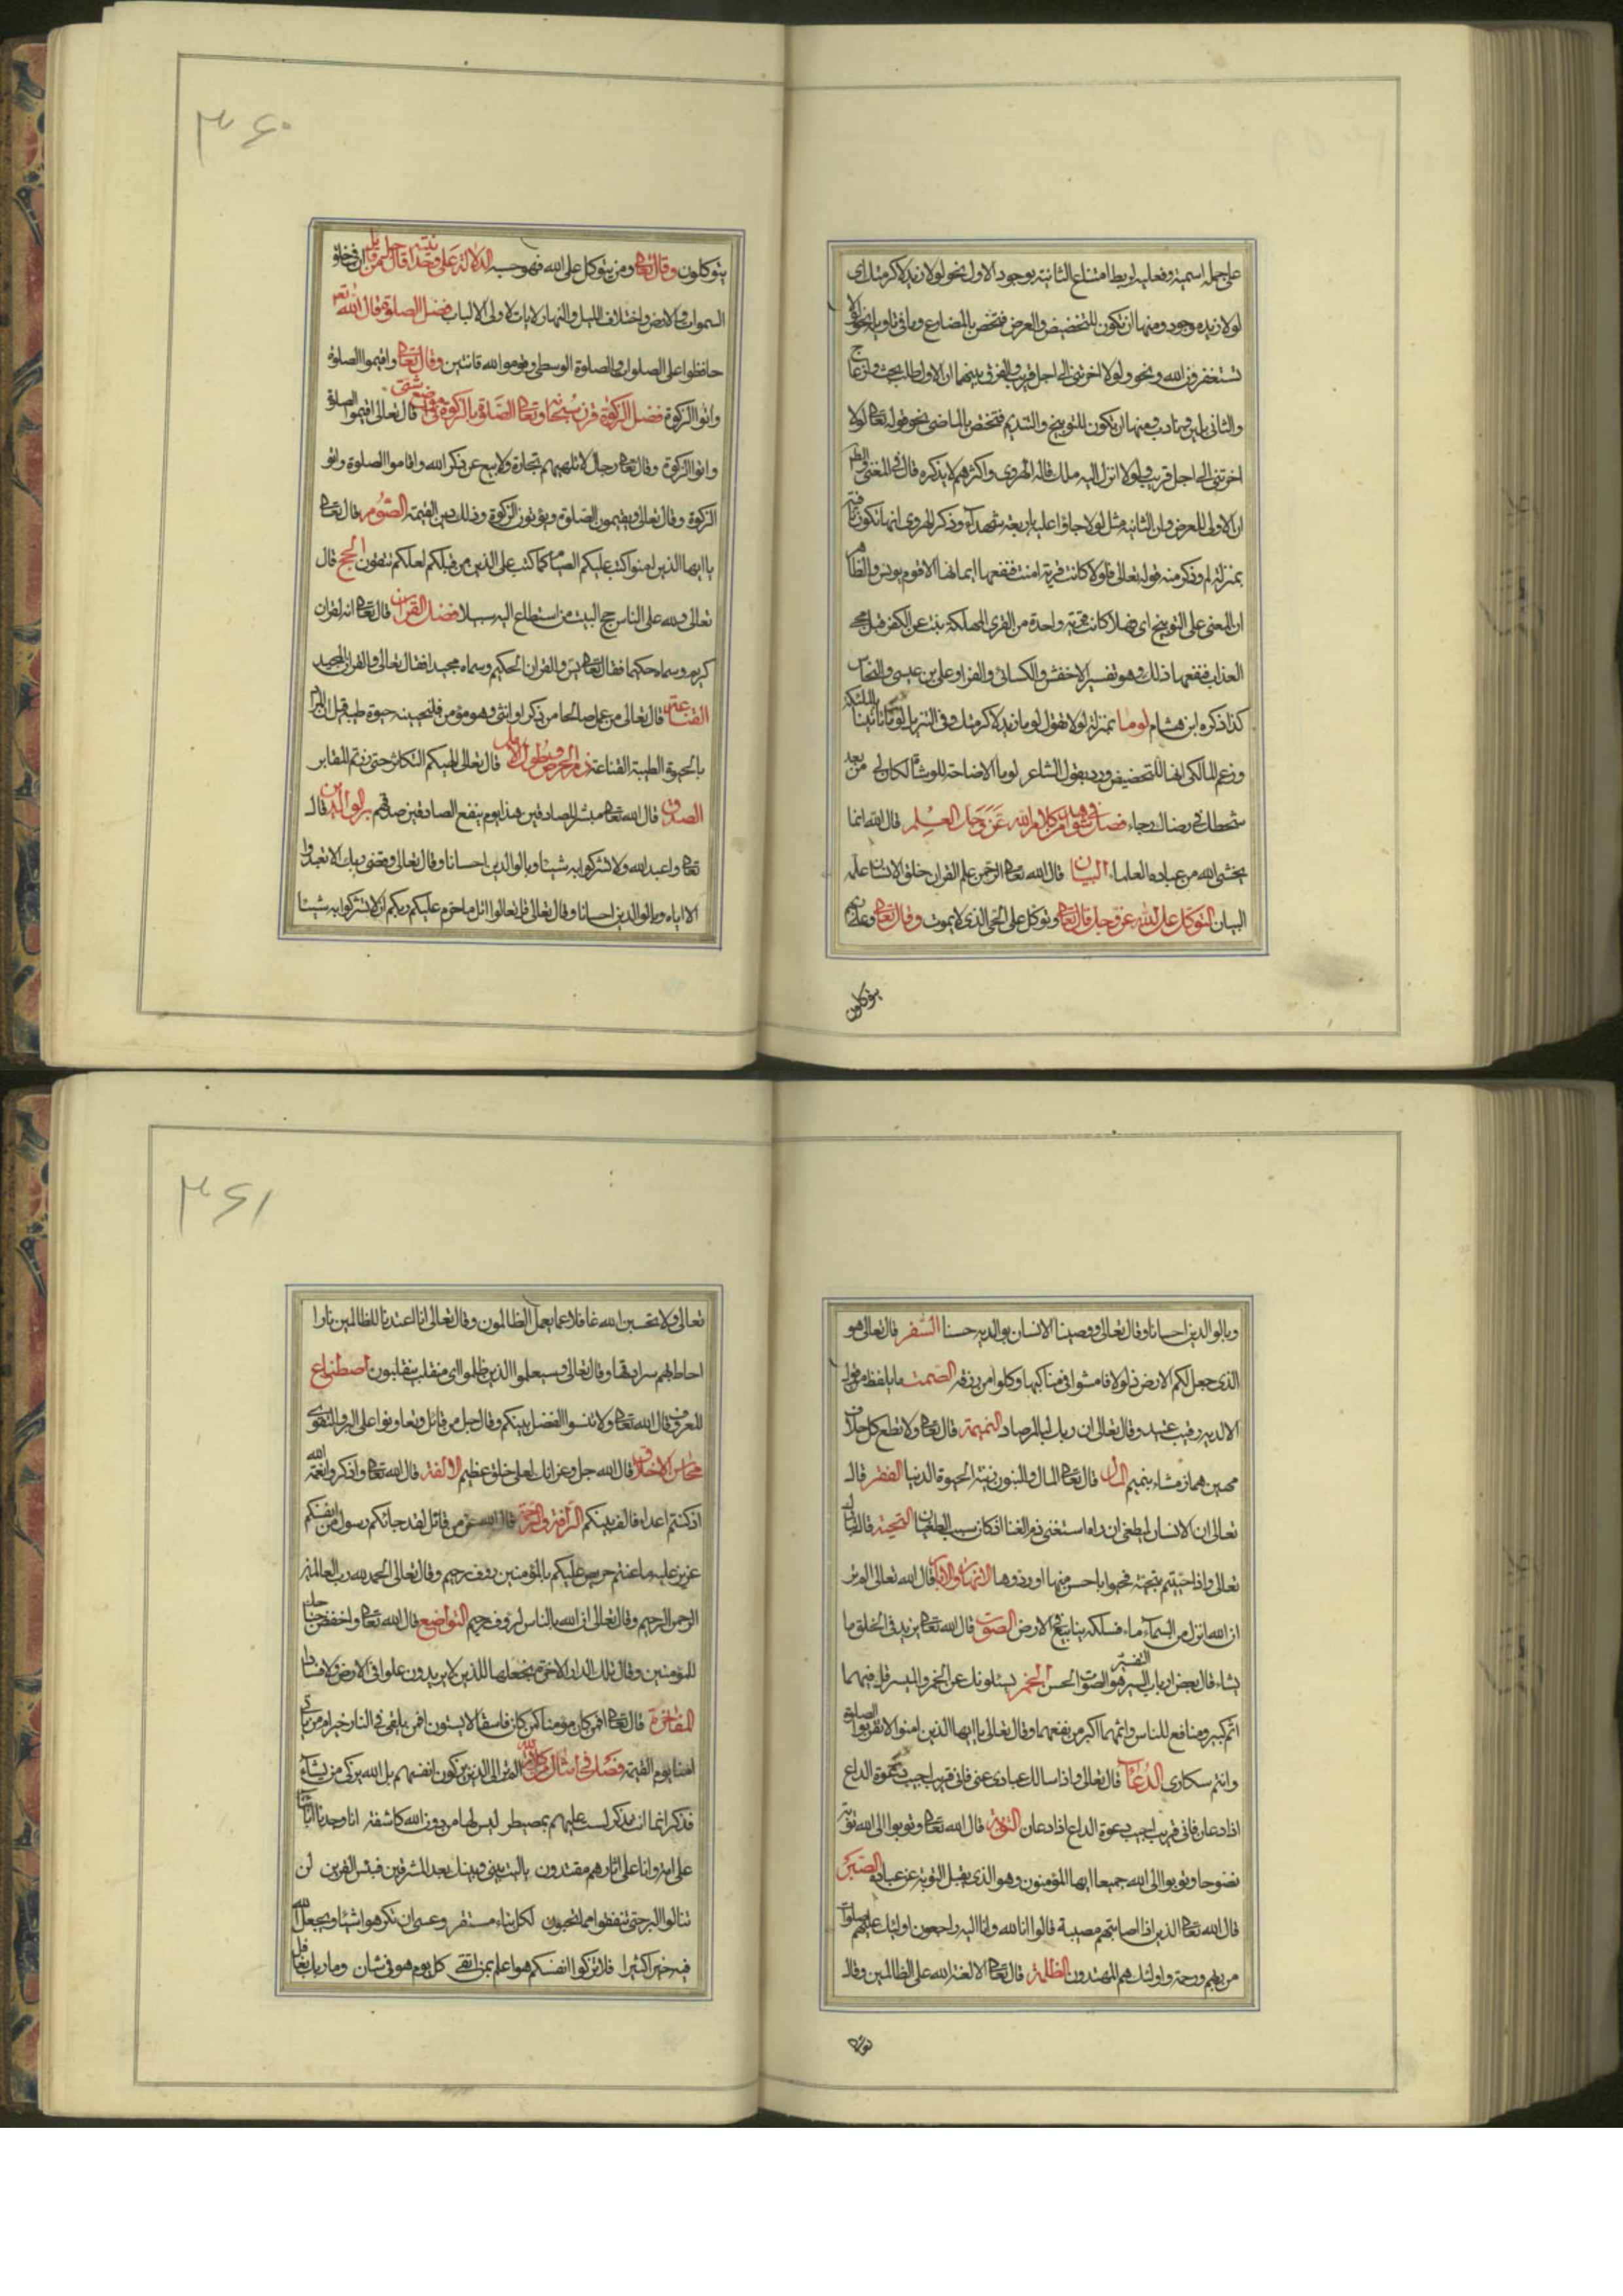 على جملة اسمية وفعلية لربط امتناع الثانية بوجود الاول نحو لولا زيد لاكرمتك اى
لولا زيد موجود ومنها ان تكون للتحضيض والعرض فتختص بالمضارع وما فى تاويله نحو لولا
تستغفرون الله ونحو ولولا اخرتنى الى اجل قريب والفرق بينهما ان الاول طلب بحث وازعاج
والثانى بلين وتادب ومنها ان تكون للتوبيخ والتنديم فتختص بالماضى نحو قوله تعالى لولا
اخرتنى الى اجل قريب ولولا انزل اليه ملك قاله الهروى واكثرهم لا يذكره قال فى المغنى والظاهر
ان الاولى للعرض وان الثانية مثل لولا جاؤا عليه باربعة شهدآء وذكر الهروى انها تكون نافية
بمنزلة لم وذكر منه قوله تعالى فلولا كانت قرية امنت فنفعها ايمانها الا قوم يونس والظاهر
ان المعنى على التوبيخ اى فهلا كانت قرية واحدة من القرى المهلكة تابت عن الكفر قبل مجىء
العذاب فنفعها ذلك وهو تفسير الاخفش والكسائى والفراء وعلى بن عيسى والنحاس
كذا ذكره ابن هشام لوما بمنزلة لولا تقول لوما زيد لاكرمتك وفى التنزيل لوما تاتينا بالملئكة
وزعم المالقى انها للتحضيض ويرده قول الشاعر لوما الاصاخة للوشاة لكان لى من بعد
سخطك فى رضاك رجاء فصل فى شواهد من كلام الله عز وجل العلم قال الله انما
يخشى الله من عباده العلماء البيان قال الله تعالى الرحمن علم القران خلق الانسان علمه
البيان التوكل على الله عز وجل قال تعالى وتوكل على الحى الذى لا يموت وقال تعالى وعلى ربهم
يتوكلون
۳۶۰
يتوكلون وقال تعالى ومن يتوكل على الله فهو حسبه الدلالة على وحدانيته قال جل من قائل ان فى خلق
السموات والارض واختلاف الليل والنهار لايات لاولى الالباب فضل الصلوة قال الله تعالى
حافظوا على الصلوات والصلوة الوسطى وقوموا لله قانتين وقال تعالى واقيموا الصلوة
واتوا الزكوة فضل الزكوة قرن سبحانه وتعالى الصلوة بالزكوة فى مواضع شتى قال تعالى اقيموا الصلوة
واتوا الزكوة وقال تعالى رجال لا تلهيهم تجارة ولا بيع عن ذكر الله واقاموا الصلوة واتو
الزكوة وقال تعالى ويقيمون الصلوة ويؤتون الزكوة وذلك دين القيمة الصوم قال تعالى
يا ايها الذين امنوا كتب عليكم الصيام كما كتب على الذين من قبلكم لعلكم تتقون الحج قال
تعالى ولله على الناس حج البيت من استطاع اليه سبيلا فضل القران قال تعالى انه لقران
كريم وسماه حكيما فقال تعالى يس والقران الحكيم وسماه مجيدا فقال تعالى والقران المجيد
القناعة قال تعالى من عمل صالحا من ذكر او انثى وهو مؤمن فلنحيينه حيوة طيبة قيل المراد
بالحيوة الطيبة القناعة ذم الحرص وطول الامل قال تعالى الهيكم التكاثر حتى زرتم المقابر
الصدق قال الله تعالى مبشر الصادقين هذا يوم ينفع الصادقين صدقهم بر الوالدين قال
تعالى واعبد الله ولا تشركوا به شيئا وبالوالدين احسانا وقال تعالى وقضى ربك الا تعبدوا
الا اياه وبالوالدين احسانا وقال تعالى قل تعالوا اتل ما حرم عليكم ربكم ان لا تشركوا به شيئا
وبالوالدين احسانا وقال تعالى ووصينا الانسان بوالديه حسنا السفر قال تعالى هو
الذى جعل لكم الارض ذلولا فامشوا فى مناكبها وكلوا من رزقه الصمت ما يلفظ من قول
الا لديه رقيب عتيد وقال تعالى ان ربك لبالمرصاد النميمة قال تعالى ولا تطع كل حلاف
مهين هماز مشاء بنميم المال قال تعالى المال والبنون زينة الحيوة الدنيا الفقر قال
تعالى ان الانسان ليطغى ان راه استغنى ذم الغنا اذ كان سبب الطغيان التحية قال
تعالى واذا حييتم بتحية فحيوا باحسن منها او ردوها قال الله تعالى الم تر
ان الله انزل من السمآء ماء فسلكه ينابيع فى الارض الصوت قال الله تعالى يزيد فى الخلق ما
يشاء قال بعض ارباب التفسير هو الصوت الحسن الخمر يسئلونك عن الخمر والميسر قل فيهما
اثم كبير ومنافع للناس واثمهما اكبر من نفعهما وقال تعالى يا ايها الذين امنوا لا تقربوا الصلوة
وانتم سكارى الدعاء قال تعالى واذا سالك عبادى عنى فانى قريب اجيب دعوة الداع
اذا دعان فانى قريب اجيب دعوة الداع اذا دعان التوبة قال الله تعالى وتوبوا الى الله توبة
نصوحا وتوبوا الى الله جميعا ايها المؤمنون وهو الذى يقبل التوبة عن عباده الصبر
قال الله تعالى الذين اذا اصابتهم مصيبة قالوا انا لله وانا اليه راجعون اولئك عليهم صلوات
من ربهم ورحمة واولئك هم المهتدون الظلمة قال تعالى الا لعنة الله على الظالمين وقال
تعالى
۳۶۱
تعالى ولا تحسبن الله غافلا عما يعمل الظالمون وقال تعالى انا اعتدنا للظالمين نارا
احاط بهم سرادقها وقال تعالى وسيعلموا الذين ظلموا اى منقلب ينقلبون اصطناع
المعروف قال الله تعالى ولا تنسوا الفضل بينكم وقال جل من قائل وتعاونوا على البر والتقوى
محاسن الاخلاق قال الله جل وعز انك لعلى خلق عظيم الالفة قال الله تعالى واذكروا نعمة الله
اذ كنتم اعداء فالف بينكم الرافة والرحمة قال الله عز من قائل لقد جائكم رسول من انفسكم
عزيز عليه ما عنتم حريص عليكم بالمؤمنين رؤف رحيم وقال تعالى الحمد لله رب العالمين
الرحمن الرحيم وقال تعالى ان الله بالناس لرؤف رحيم التواضع قال الله تعالى واخفض جناحك
للمؤمنين وقال تلك الدار الاخرة نجعلها للذين لا يريدون علوا فى الارض ولا فسادا
المفاخرة قال تعالى افمن كان مؤمنا كمن كان فاسقا لا يستون افمن يلقى فى النار خير ام من ياتى
امنا يوم القيمة فصل فى امثال من كلام الله الم تر الى الذين يزكون انفسهم بل الله يزكى من يشآء
فذكر انما انت مذكر لست عليهم بمصيطر ليس لها من دون الله كاشفة انا وجدنا ابائنا
على امة وانا على اثارهم مقتدون يا ليت بينى وبينك بعد المشرقين فبئس القرين لن
تنالوا البر حتى تنفقوا مما تحبون لكل نباء مستقر وعسى ان تكرهوا شيئا ويجعل الله
فيه خيرا كثيرا فلا تزكوا انفسكم هو اعلم بمن اتقى كل يوم هو فى شان وما ربك بغافل